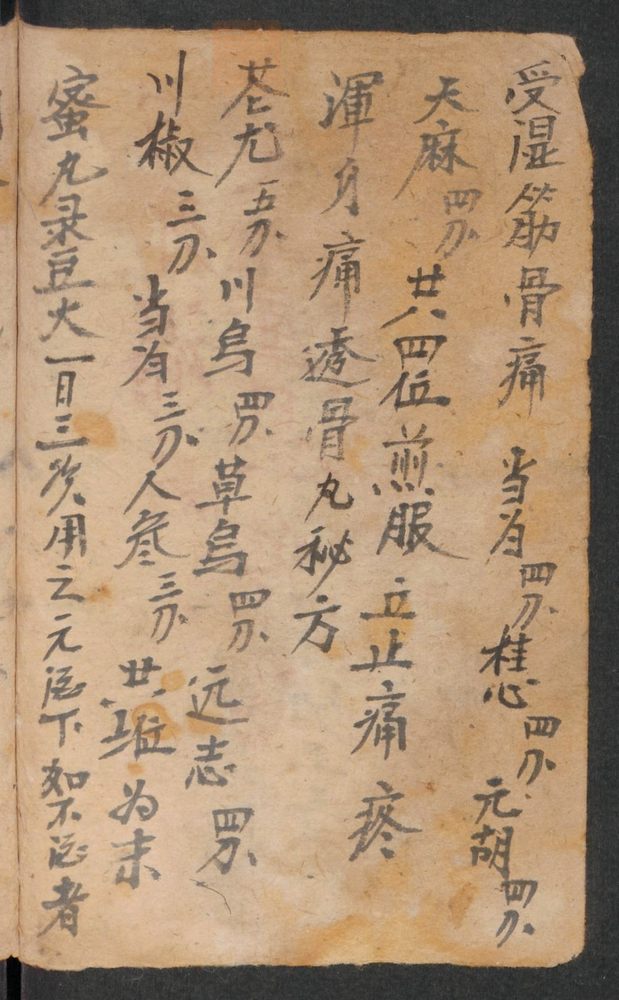 受湿筋骨痛 当为四分 桂心四分 元胡四分
天麻四分 共四位煎服立止痛疼
渾身痛透骨丸秘方
苍尤五分 川乌四分 草乌四分 远志四分
川椒三分 当为三分 人参三分 共 为末
蜜丸录豆大一日三次用之元 下如不 者